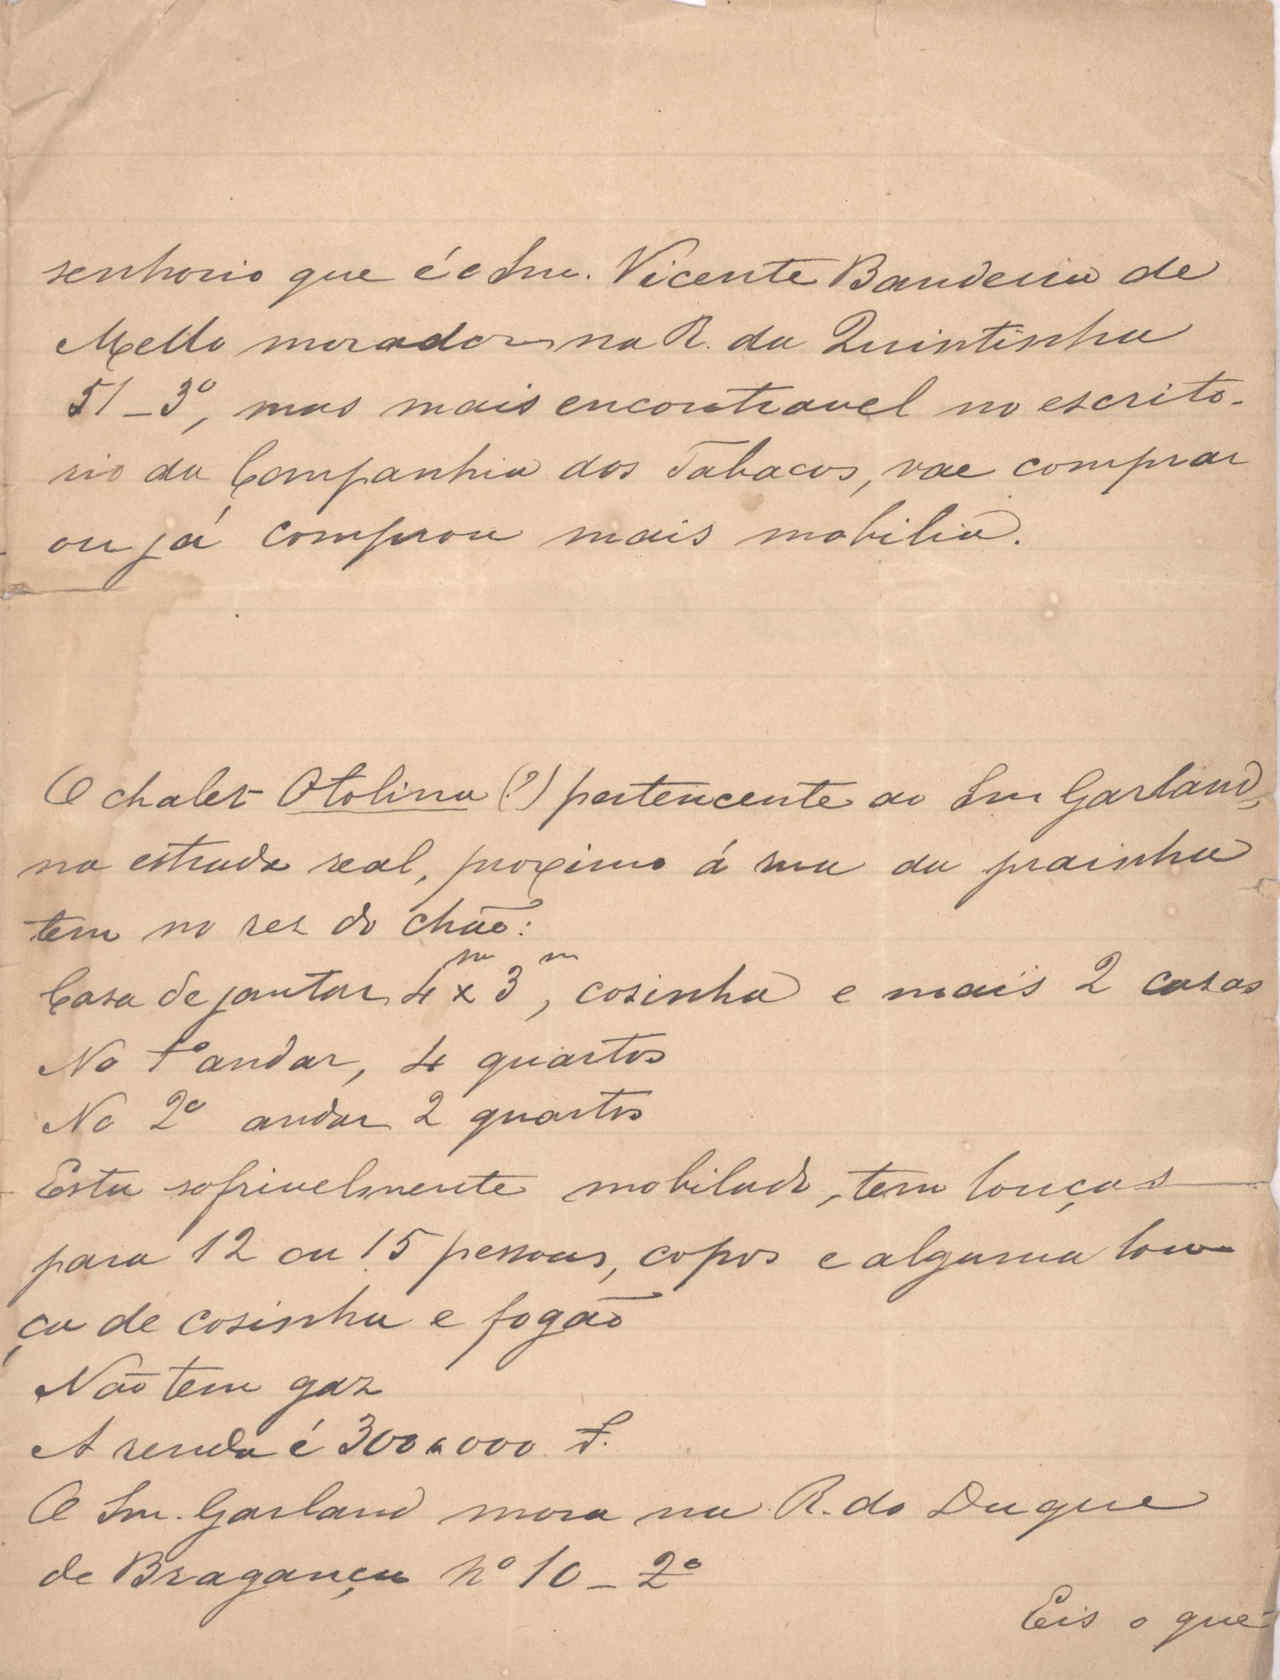 senhorio que é o Snr. Vicente Bandeira de
Mello morador na R. da Quintinha
51–3º, mas mais encontravel no escrito-
rio da Companhia dos Tabacos, vae comprar
ou já comprou mais mobilia.
O chalet Otolina (?) pertencente ao Snr Garland,
na estrada real, proximo á rua da prainha
tem no res do chão:
Casa de jantar 4m x 3m, cosinha e mais 2 casas
No 1º andar, 4 quartos
No 2º andar 2 quartos
Esta sofrivelmente mobilado, tem louças
para 12 ou 15 pessoas, copos e alguma lou-
ça de cosinha e fogão
Não tem gaz
A renda é 300.000
O Snr. Garland mora na R. do Duque
de Bragança nº 10–2º
Eis o que